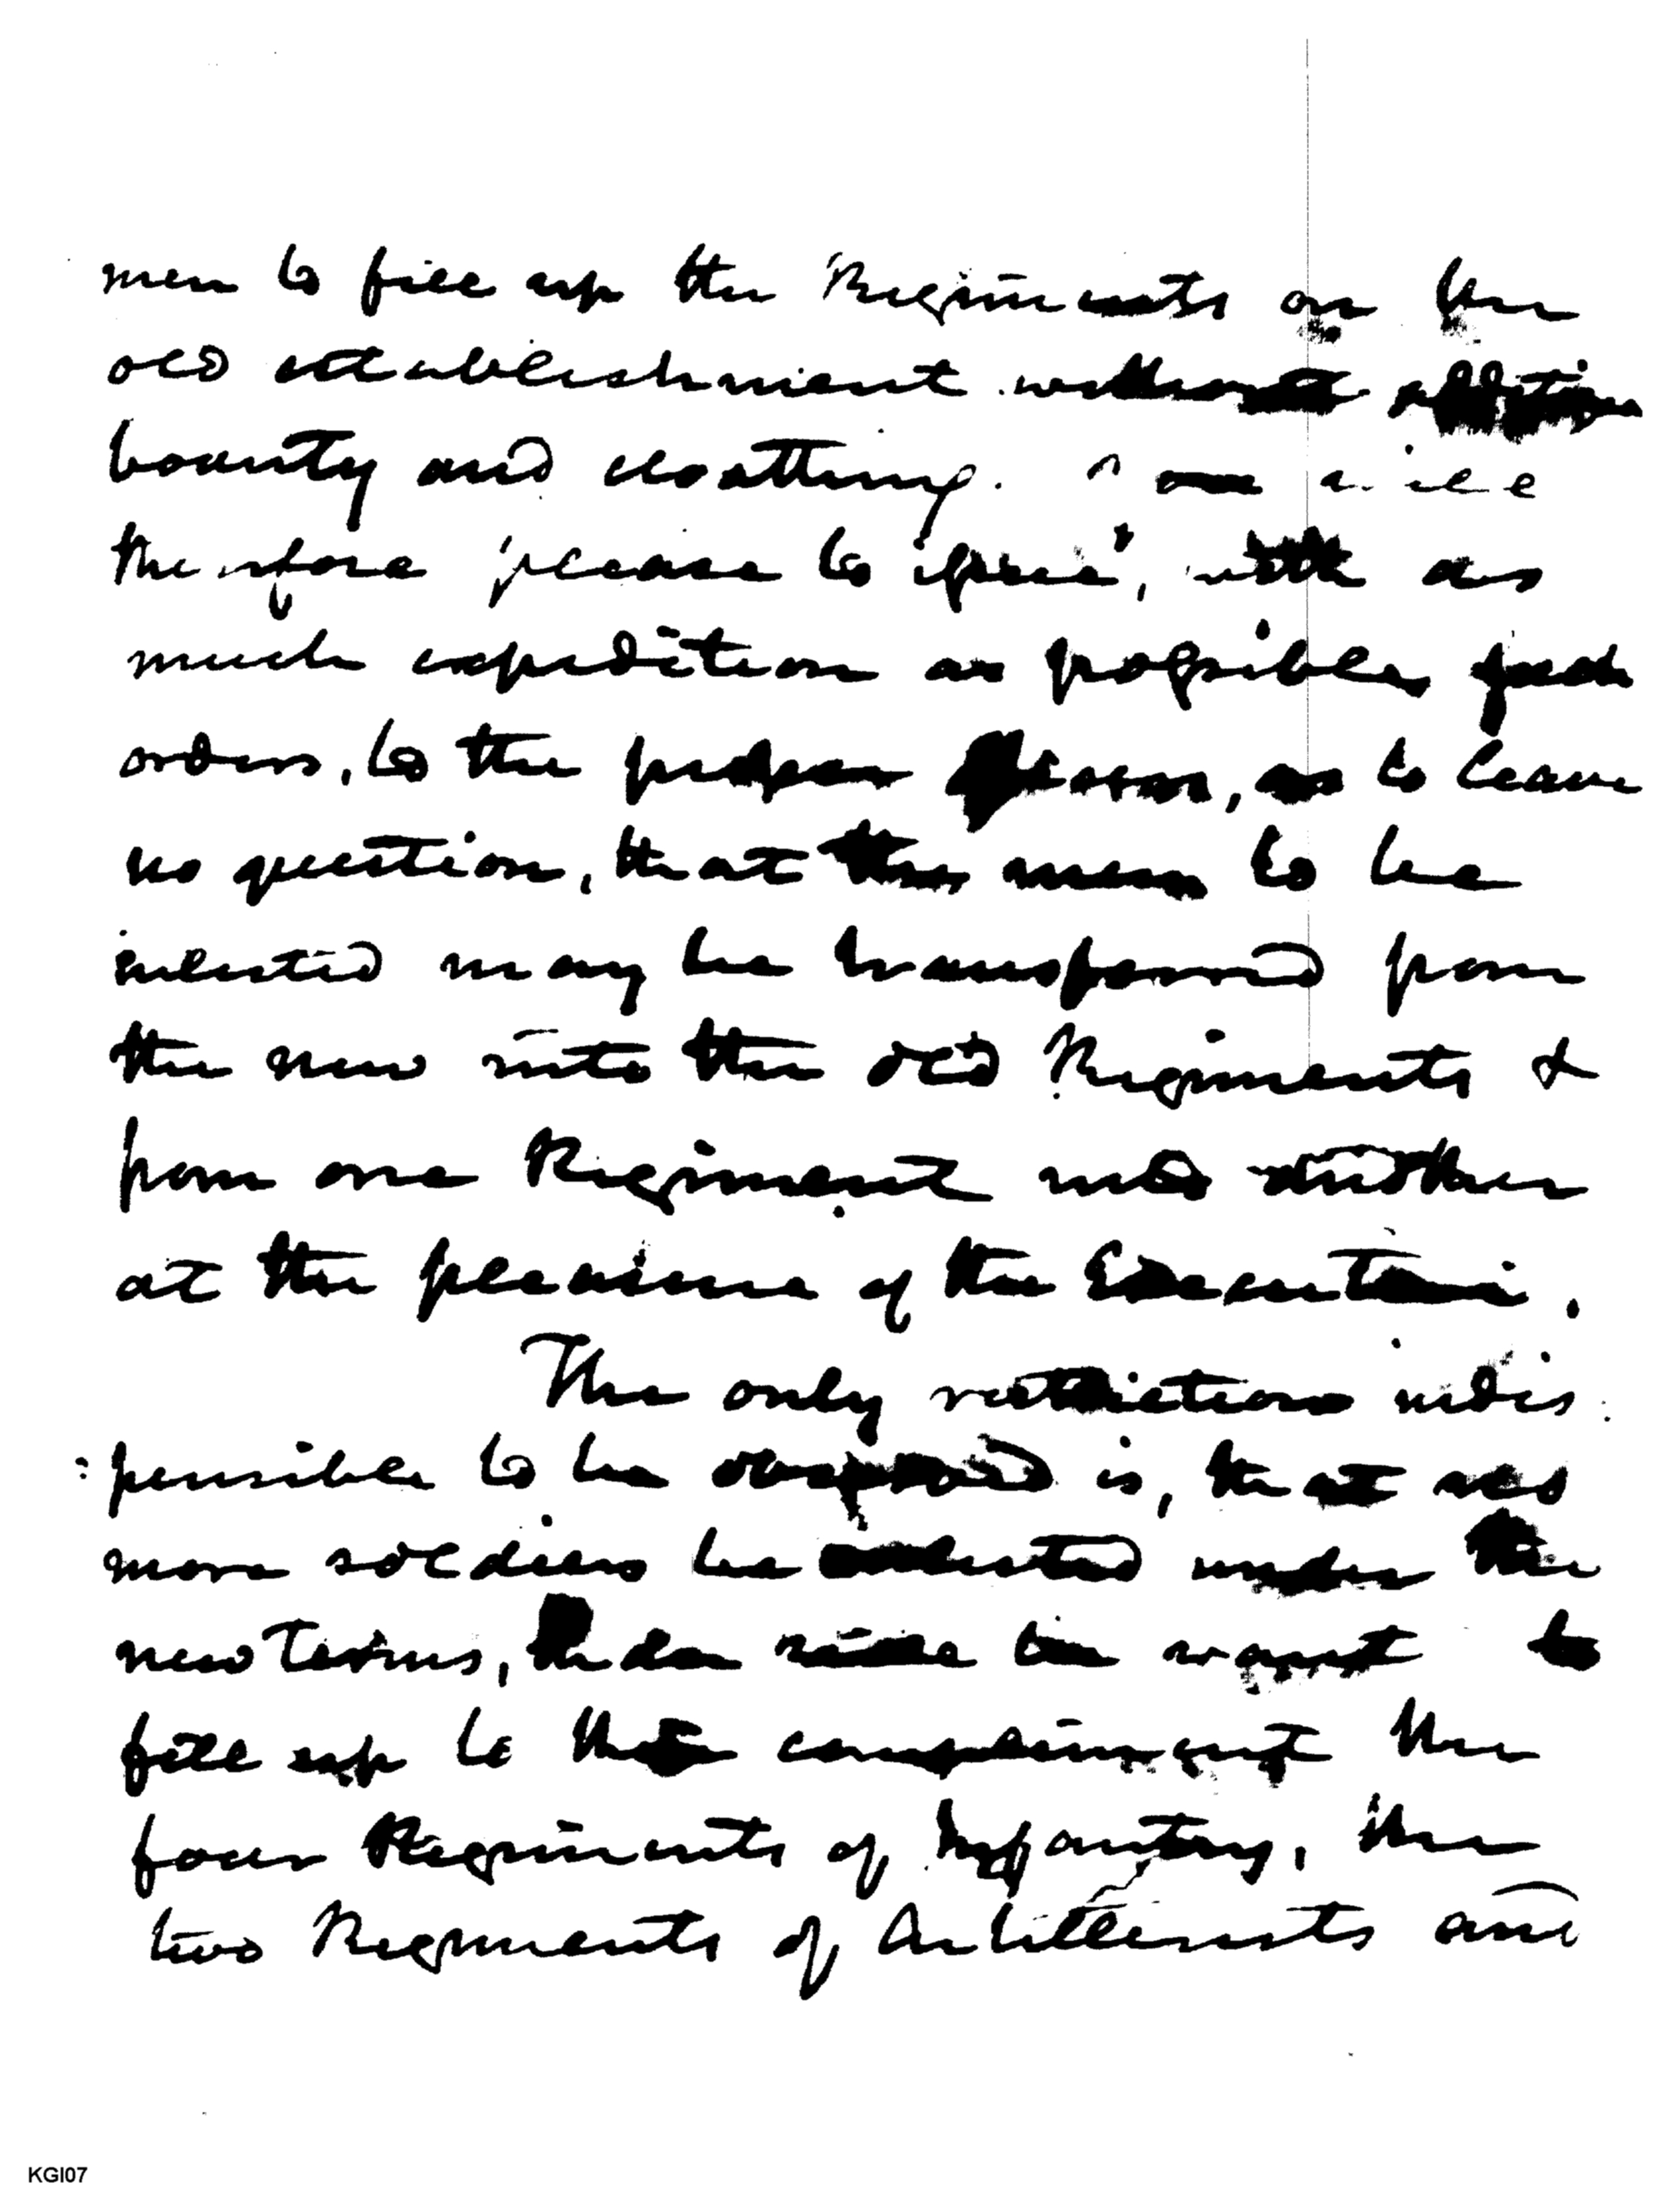 men to fill up the Regiments on the
old establishment without
bounty and cloathing. will
therefore please to issue, with as
much expedition as possible, such
orders, to the proper as to leave
no question, that the men to be
inlisted may be transferred from
the new into the old Regiments &
from one Regiment into another
at the pleasure of the Executive.
The only restriction indis
:pensible to be observed is, that no
more soldiers be inlisted under the
new terms, than will be want to
fill up to the compliment the
four Regiments of Infantry, the
two Regiments of Artillerists and
KGI07